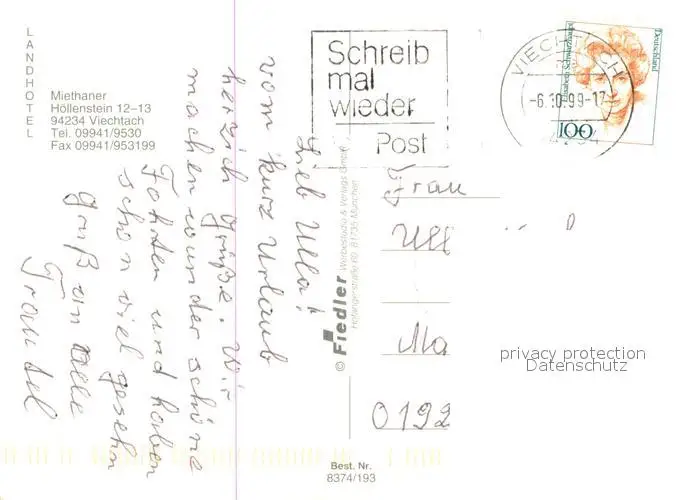 LANDHOTEL
Miethaner
Höllenstein 12–13
94234 Viechtach
Tel. 09941/9530
Fax 09941/953199
Schreib
mal
wieder
Post
VIECHTACH
-6.10.99-17
94234
Deutschland
Elisabeth Schwarzhaupt
100
Lieb Ulla!
vom Kurz Urlaub
herzlich grüße. Wir
machen wunder schöne
Fahrten und haben
schon viel gesehn
gruß an alle
Traudel
© Fiedler Werbestudio & Verlags GmbH
Hofangerstraße 80 · 81735 München
Frau
Ull
Ma
0192
privacy protection
Datenschutz
Best. Nr.
8374/193